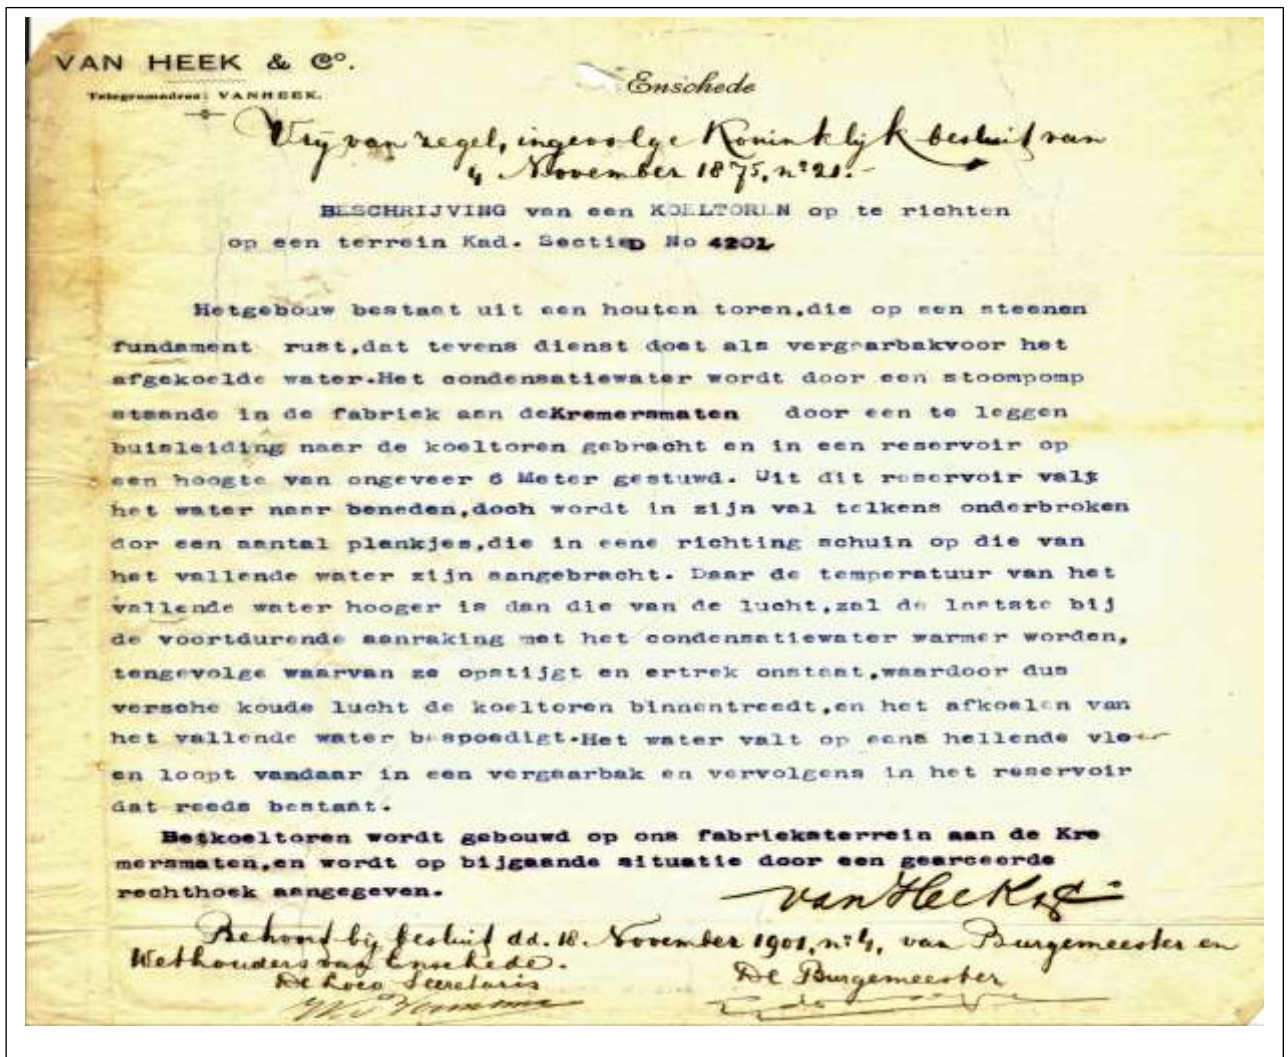 VAN HEEK & Co.
Enschede
Telegramadres: VANHEEK.
Vrij van zegel, ingevolge Koninklijk besluit van
4 November 1875, no 21.-
BESCHRIJVING van een KOELTOREN op te richten
op een terrein Kad. Sectie D No 4201
Hetgebouw bestaat uit een houten toren,die op een steenen
fundament rust,dat tevens dienst doet als vergaarbakvoor het
afgekoelde water.Het condensatiewater wordt door een stoompomp
staande in de fabriek aan deKremersmaten door een te leggen
buisleiding naar de koeltoren gebracht en in een reservoir op
een hoogte van ongeveer 6 Meter gestuwd. Uit dit reservoir valt
het water naar beneden,doch wordt in zijn val telkens onderbroken
dor een aantal plankjes,die in eene richting schuin op die van
het vallende water zijn aangebracht. Daar de temperatuur van het
vallende water hooger is dan die van de lucht,zal de laatste bij
de voortdurende aanraking met het condensatiewater warmer worden,
tengevolge waarvan ze opstijgt en ertrek onstaat,waardoor dus
versche koude lucht de koeltoren binnentreedt,en het afkoelen van
het vallende water bespoedigt.Het water valt op eene hellende vloer
en loopt vandaar in een vergaarbak en vervolgens in het reservoir
dat reeds bestaat.
Hetkoeltoren wordt gebouwd op ons fabrieksterrein aan de Kre
mersmaten,en wordt op bijgaande situatie door een gearceerde
rechthoek aangegeven.
van Heek & Co
Behoort bij besluit dd. 18. November 1901, no 4, van Burgemeester en
Wethouders van Enschede.
De Loco Secretaris
De Burgemeester